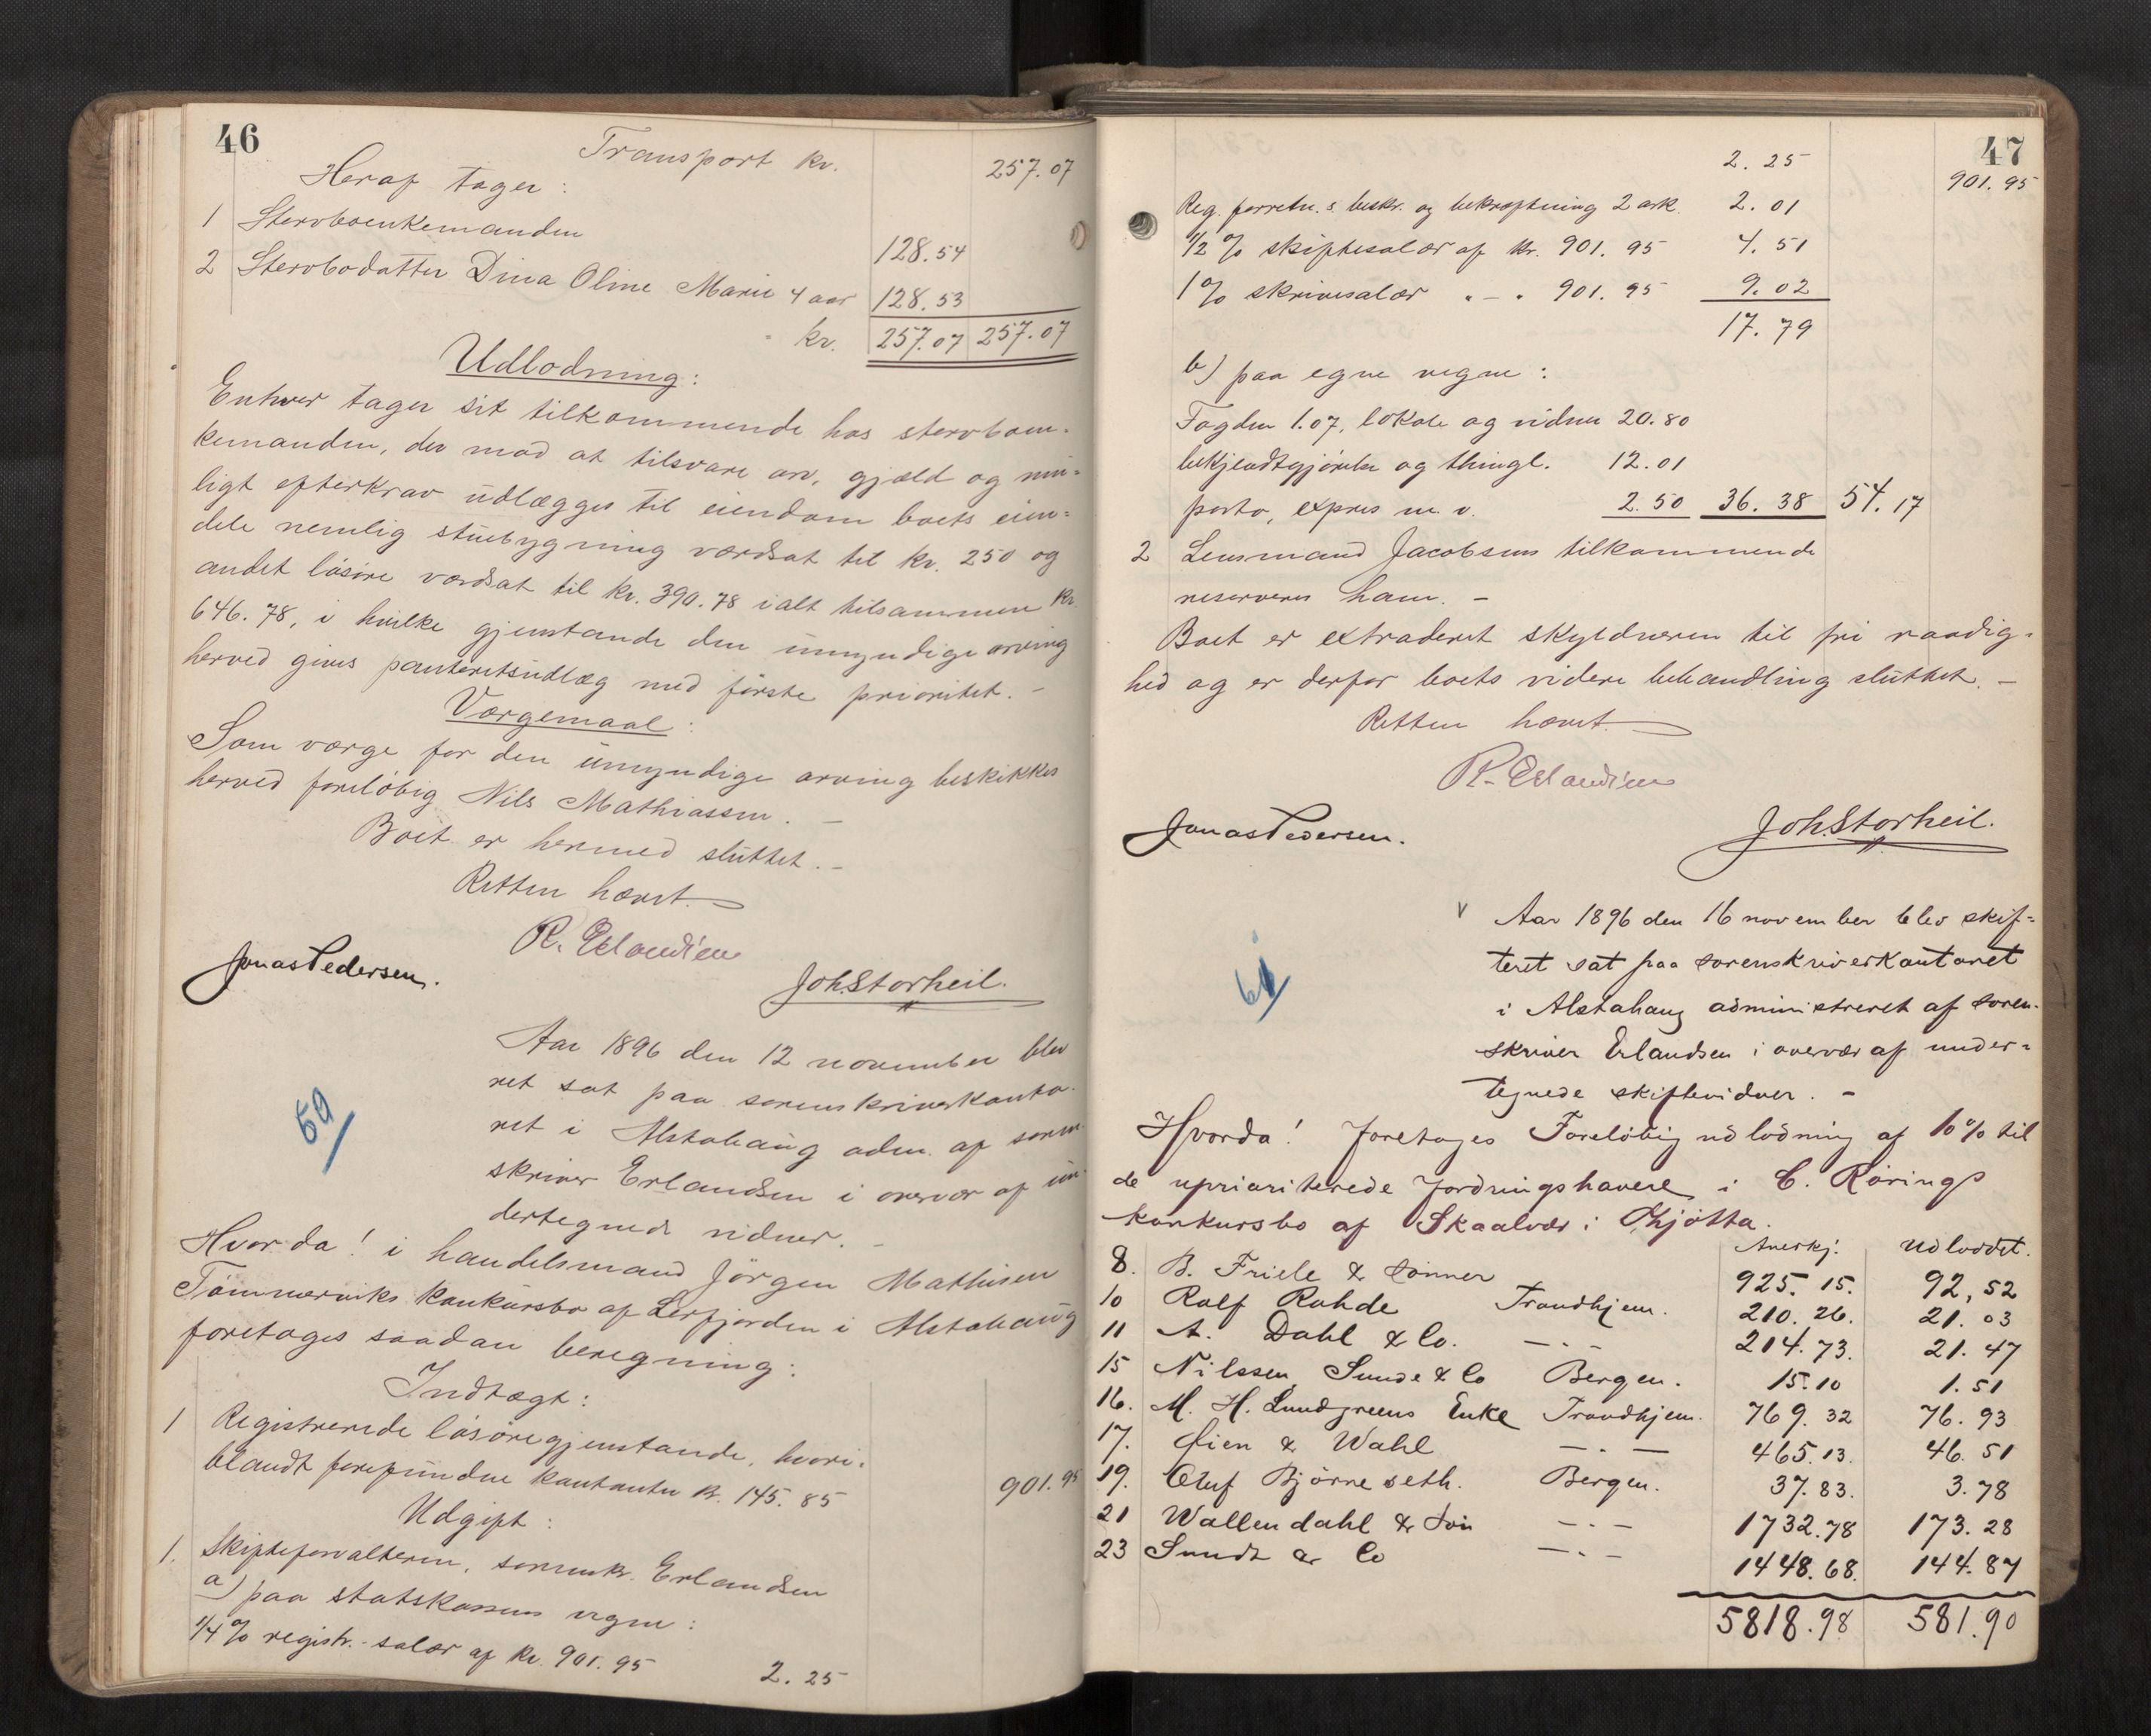 46
Transport kr. 257.07
Heraf tager:
1 Stervboenkemanden 128.54
2 Stervbodatter Dina Oline Marie 4 aar 128.53
kr. 257.07 257.07
Udlodning:
Enhver tager sit tilkommende hos stervboen-
kemanden, der mod at tilsvare arv, gjæld og mu-
ligt efterkrav udlægges til eiendom boets eien-
dele nemlig stuebygning værdsat til kr. 250 og
andet løsøre værdsat til kr. 390.78 ialt tilsammen kr.
646.78, i hvilke gjenstande den umyndige arving
herved gives panteretsudlæg med første prioritet. -
Værgemaal:
Som værge for den umyndige arving beskikkes
herved foreløbig Nils Mathiassen. -
Boet er hermed sluttet. -
Retten hævet.
R. Erlandsen
Jonas Pedersen. Joh. Storheil.
59
Aar 1896 den 12 november blev
ret sat paa sorenskriverkonto-
ret i Alstahaug adm. af soren-
skriver Erlandsen i overvær af un-
dertegnede vidner. -
Hvorda! i handelsmand Jörgen Mathisen
Tömmerviks konkursbo af Leifjorden i Alstahaug
foretages saadan beregning:
Indtægt:
1 Registrerede løsøregjenstande, hvori-
blandt forefundne kontanter kr. 145.85 901.95
Udgift:
1. Skifteforvalteren, sorenskr. Erlandsen
a) paa statskassens vegne:
1/4 % registr.-salær af kr. 901.95 2.25
47
2.25 901.95
Reg. forretn.s beskr. og bekræftning 2 ark. 2.01
1/2 % skiftesalær af kr. 901.95 4.51
1 % skrivesalær " - " 901.95 9.02
17.79
b) paa egne vegne:
Fogden 1.07, lokale og vidner 20.80
bekjendtgjørelse og thingl. 12.01
porto, expres m. v. 2.50 36.38 54.17
2 Lensmand Jacobsens tilkommende
reserveres ham. -
Boet er extraderet skyldneren til fri raadig-
hed og er derfor boets videre behandling sluttet. -
Retten hævet.
R. Erlandsen
Jonas Pedersen. Joh. Storheil.
v Aar 1896 den 16 november blev skif-
teret sat paa sorenskriverkontoret
i Alstahaug administreret af soren-
skriver Erlandsen i overvær af under-
tegnede skiftevidner. -
Hvorda! foretages Foreløbig udlodning af 10% til
de upriariterede fordringshavere i C. Rörings
konkursbo af Skaalvær i Thjötta.
Anerkj. Udloddet.
8. B. Friele & sönner 925.15. 92,52
10 Rolf Rohde Trondhjem. 210.26. 21.03
11 A. Dahl & Co. -.- 214.73. 21.47
15 Nilssen Sunde & Co Bergen. 15.10 1.51
16. M. H. Lundgreens Enke Trondhjem. 769.32 76.93
17. Øien & Wahl -.- 465.13. 46.51
19. Oluf Bjørneseth. Bergen. 37.83. 3.78
21 Wallendahl & Søn -.- 1732.78 173.28
23 Sundt & Co -.- 1448.68. 144.87
5818.98 581.90